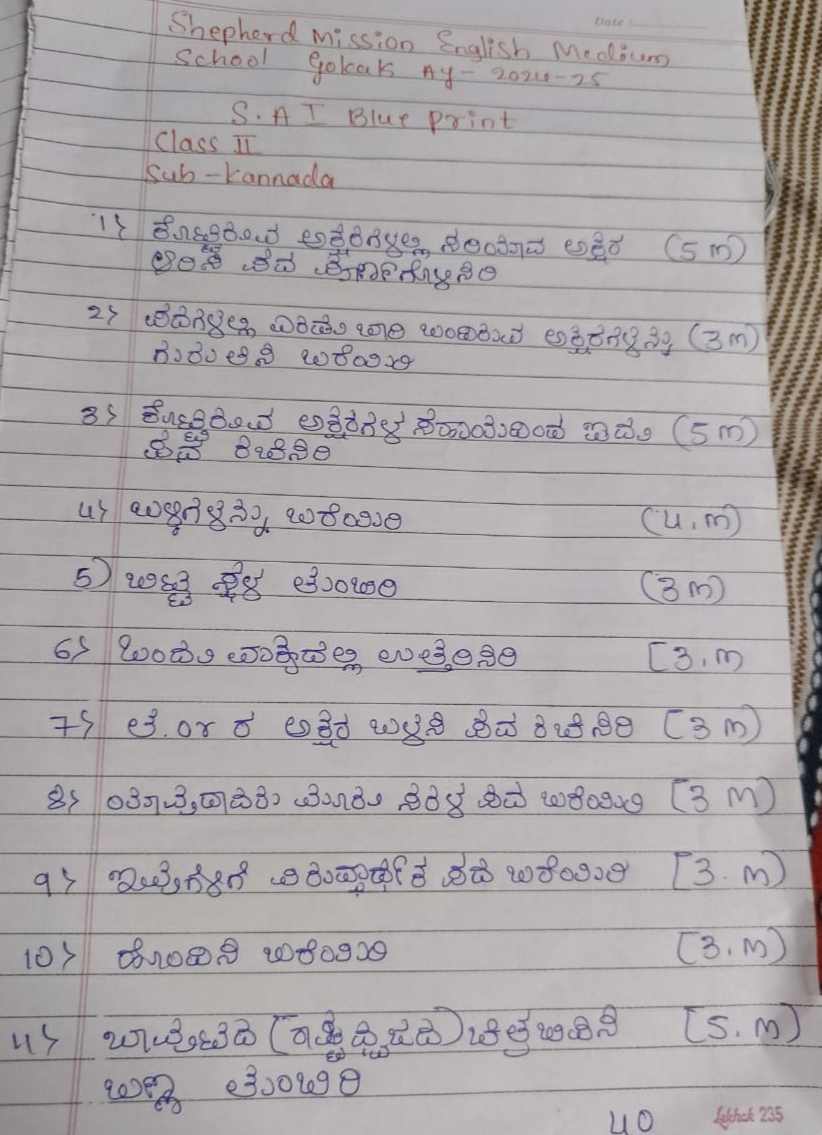 Date :
Shepherd Mission English Medium
School Gokak AY - 2024-25
S.A I Blue Print
Class II
Sub - Kannada
1> ಕೊಟ್ಟಿರುವ ಅಕ್ಷರಗಳಲ್ಲಿ ಸರಿಯಾದ ಅಕ್ಷರ (5 m)
ಆರಿಸಿ ಪದ ಪೂರ್ಣಗೊಳಿಸಿರಿ
2> ಪದಗಳಲ್ಲಿ ಎರಡು ಬಾರಿ ಬಂದಿರುವ ಅಕ್ಷರಗಳನ್ನು (3m)
ಗುರುತಿಸಿ ಬರೆಯಿರಿ
3> ಕೊಟ್ಟಿರುವ ಅಕ್ಷರಗಳ ಸಹಾಯದಿಂದ ಐದು (5 m)
ಪದ ರಚಿಸಿರಿ
4> ಬಳ್ಳಿಗಳನ್ನು ಬರೆಯಿರಿ (4.m)
5) ಬಿಟ್ಟ ಸ್ಥಳ ತುಂಬಿರಿ (3 m)
6> ಒಂದು ವಾಕ್ಯದಲ್ಲಿ ಉತ್ತರಿಸಿರಿ [3.m
7> ಅಕ್ಷರ ಬಳಸಿ ಪದ ರಚಿಸಿರಿ [3 m)
8> ಯಾವುದಾದರು ಮೂರು ಸರಳ ಪದ ಬರೆಯಿರಿ [3 m)
9> ಇವುಗಳಿಗೆ ವಿರುದ್ಧಾರ್ಥಕ ಪದ ಬರೆಯಿರಿ [3.m)
10> ಹೊಂದಿಸಿ ಬರೆಯಿರಿ [3.m)
11> ಬಾವುಟದ (ರಾಷ್ಟ್ರಧ್ವಜದ) ಚಿತ್ರ ಬಿಡಿಸಿ [5.m)
ಬಣ್ಣ ತುಂಬಿರಿ
40
Lekhak 235